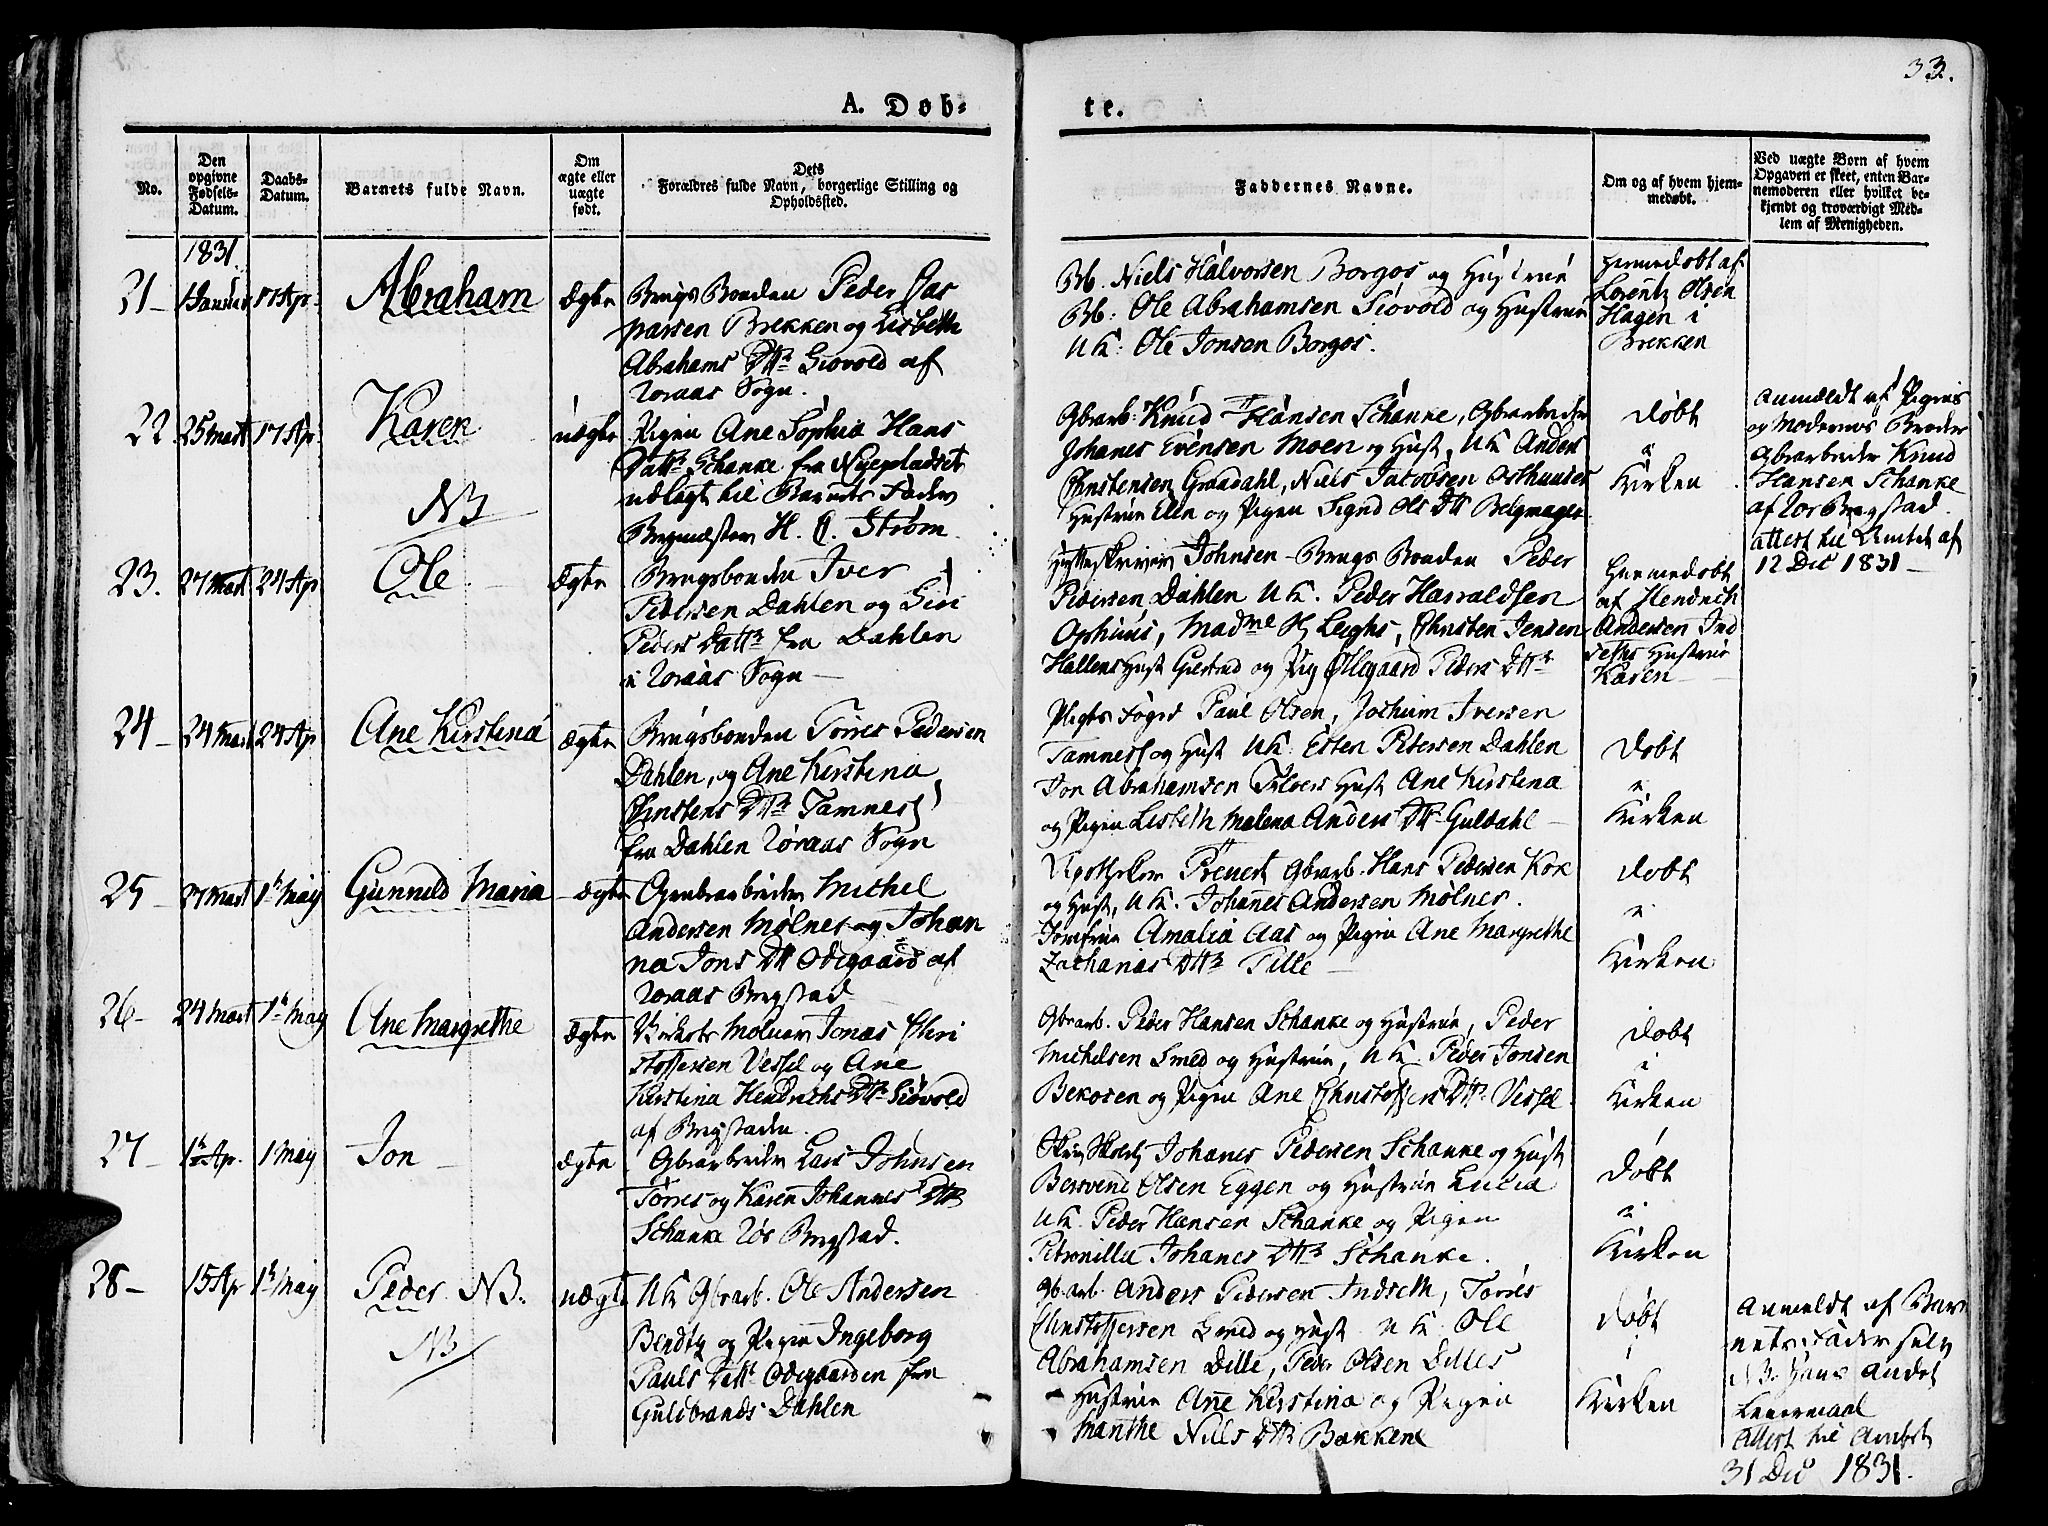 33.
A. Døb-
te.
No.
Den opgivne Fødsels-Datum.
Daabs-Datum.
Barnets fulde Navn.
Om ægte eller uægte født.
Dets Forældres fulde Navn, borgerlige Stilling og Opholdssted.
Faddernes Navne.
Om og af hvem hjem-medøbt.
Ved uægte Børn af hvem Opgaven er skeet, enten Bar-nemoderen eller hvilket be-kjendt og troværdigt Med-lem af Menigheden.
1831
21 - 17 Apr. Abraham Ægte
Brugs Bonden Peder Cas
parsen Brekken og Lisbeth
Abrahams Dttr Siøvold af
Røraas Sogn.
Bb. Niels Halvorsen Borgos og Hustrue
Bb: Ole Abrahamsen Siøvold og Hustrue
UK: Ole Jonsen Borgos.
Hiemedøbt af
Lorentz Olsen
Hagen i
Brekken
22 25 Mart 17 Ap Karen uægte
NB
Pigen Ane Sophia Hans
Dattr Schanke fra Nyepladset
udlagt til Barnets Fader
Bergmester H. C. Strøm.
Gbrarb. Knud Hansen Schanke, Gbrarbeider
Johanes Evensen Moen og Hust, UK Anders
Christensen Graadahl, Niels Jacobsen Osthuuser
Hustrue Elen og Pigen Sigrid Ols Dtt Belgmager.
døbt
i
Kirken
Anmældt af Pigens
og Modernes Broder
Gbrarbeider Knud
Hansen Schanke
af Rør Bergstad.
attert til Amtet af
12 Dec 1831 -
23. 27 Mart 24 Ap Ole Ægte
Brugsbonden Iver
Pedersen Dahlen og Siri
Peders Dattr fra Dahlen
i Røraas Sogn -
Hytteskriver Johnsen - Brugs Bonden Peder
Pedersen Dahlen UK. Peder Harraldsen
Ophuus, Madme H Leighs, Christen Jensen
Hallens Hust Giertrud og Pig Ollegaard Peders Dttr
Hiemedøbt
af Hendrich
Andersen Ind
seths Hustrue
Karen -
24 - 24 Mart 24 Ap Ane Kirstina Ægte
Brugsbonden Torres Pedersen
Dahlen, og Ane Kirstina
Christens Dttr Tamnes
fra Dahlen Røraas Sogn
Pligts Foged Paul Olsen, Jochum Iversen
Tamnes og Hust UK: Esten Pedersen Dahlen
Jon Abrahamsen Hust Ane Kirstina
og Pigen Lisbeth Malena Anders Dttr Guldahl -
døbt
i
Kirken
25 - 27 Mart 1te May Gunnild Maria - Ægte
Grubearbeider Michel
Andersen Mølnes og Johan
na Jons Dtt Ødegaard af
Røraas Bergstad
Apotheker Prenert Gbrarb. Hans Pedersen Kok
og Hust, UK. Johannes Andersen Mølnes.
Jomfrue Amalia Aas og Pigen Ane Margrethe
Zacharias Dttr Tille -
døbt
i
Kirken
26 - 24 Mart 1te May Ane Margrethe Ægte
Jonas Chri
stoffersen Vessel og Ane
Kirstina Hendrichs Dttr Siøvold
af Bergstaden.
Gbrarb. Peder Hansen Schanke og Hustrue, Peder
Michelsen Smed og Hustrue, UK. Peder Jonsen
Bekosen og Pigen Ane Christoffers Dttr Vessel.
døbt
i
Kirken
27 - 1te Ap. 1 May Jon - Ægte
Gbrarbeider Lars Johnsen
Torres og Karen Johannes Dttr
Schanke Rør Bergstad.
Johanes Pedersen Schanke og Hust
Bersvend Olsen Eggen og Hustrue Lucia
UK. Peder Hansen Schanke og Pigen
Petronilla Johanes Dttr Schanke.
døbt
i
Kirken
28 - 15 Ap 1te May Peder NB. uægte
NB
UK Gbrarb. Ole Andersen
Bendtz og Pigen Ingeborg
Pauls Dattr Ødegaarden fra
Guldbrands Dahlen
Gbrarb. Anders Pedersen Indseth, Torres
Christoffersen Smed og Hust UK Ole
Abrahamsen Dille, Peder Olsen Dilles
- Hustrue Ane Kirstina og Pigen
- Marithe Niels Dttr Bakkene
døbt
i
Kirken
Anmeldt af Bar
nets Fader selv
NB. hans Andet
Leiermaal
Attert til Amtet
31 Dec 1831.